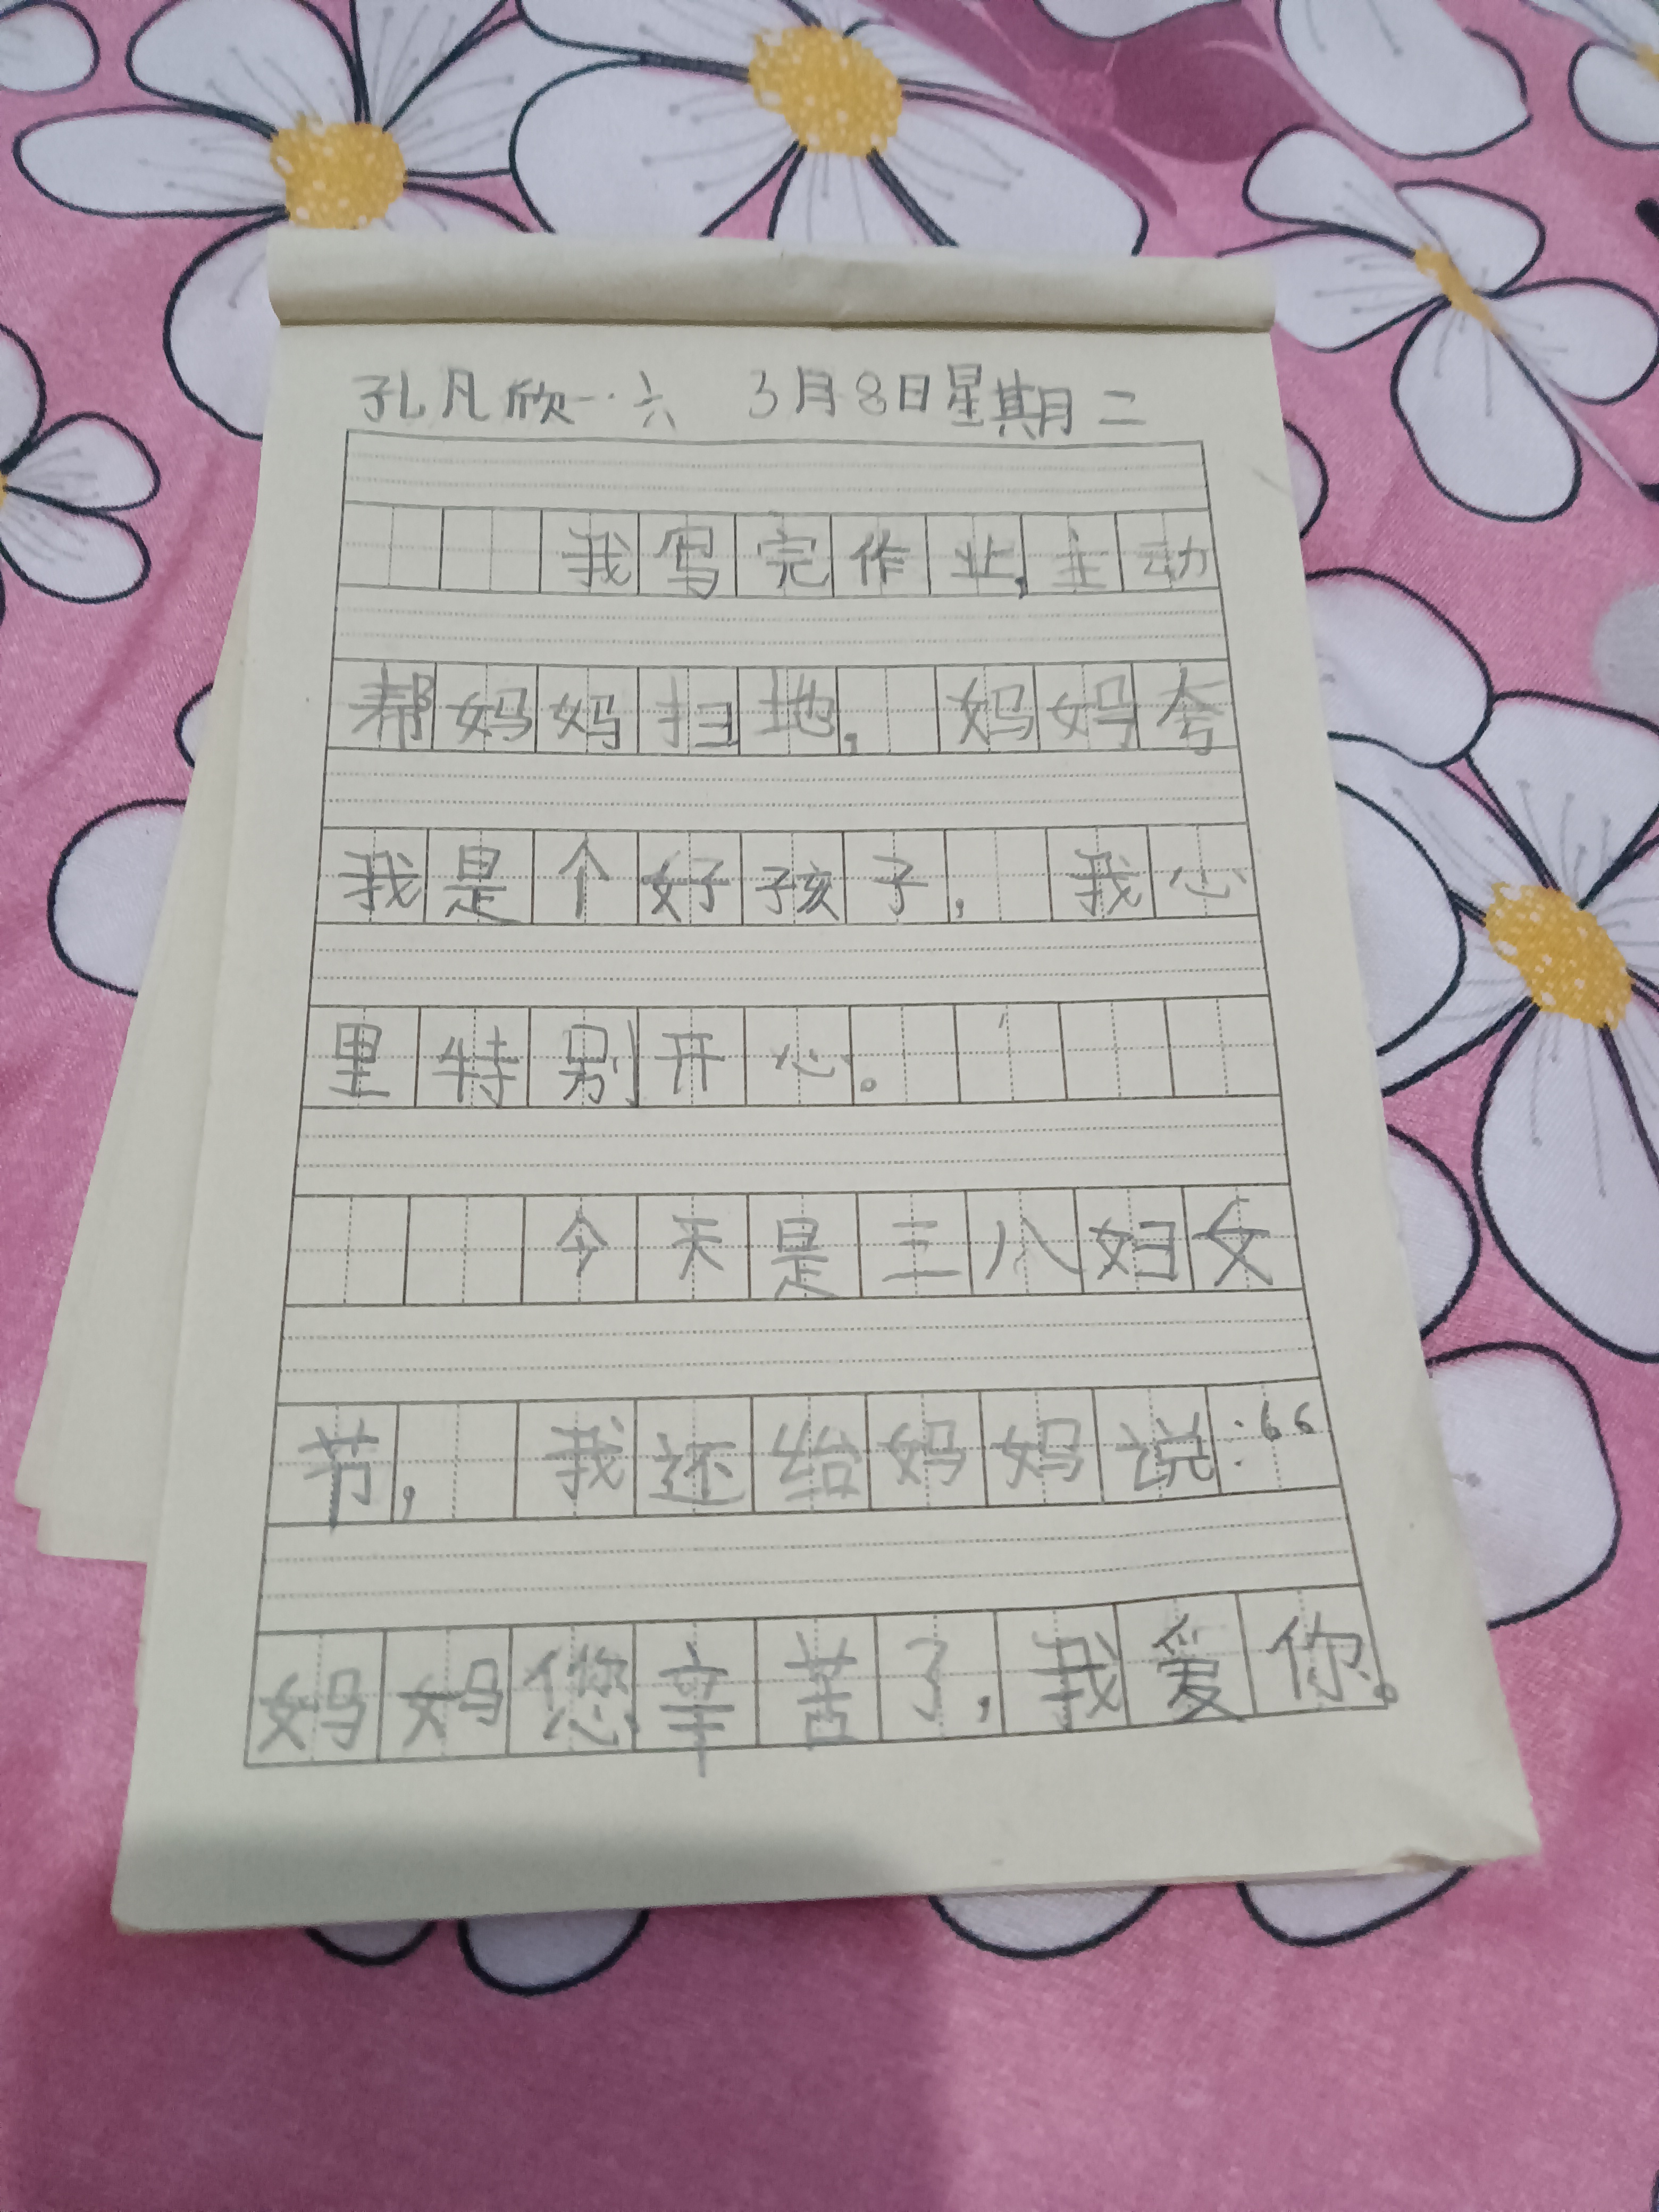 孔凡欣一·六 3月8日星期二
我写完作业,主动
帮妈妈扫地, 妈妈夸
我是个好孩子, 我心
里特别开心。
今天是三八妇女
节, 我还给妈妈说:“
妈妈您辛苦了,我爱你。